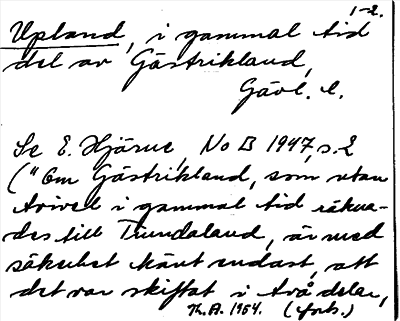 1-2.
Upland, i gammal tid
del av Gästrikland,
Gävl. l.
Se E. Hjärne, No B 1947, s. 2
("Om Gästrikland, som utan
tvivel i gammal tid räkna-
des till Tiundaland, är med
säkerhet känt endast, att
det var skiftat i två delar,
Th. A. 1954. (forts.)